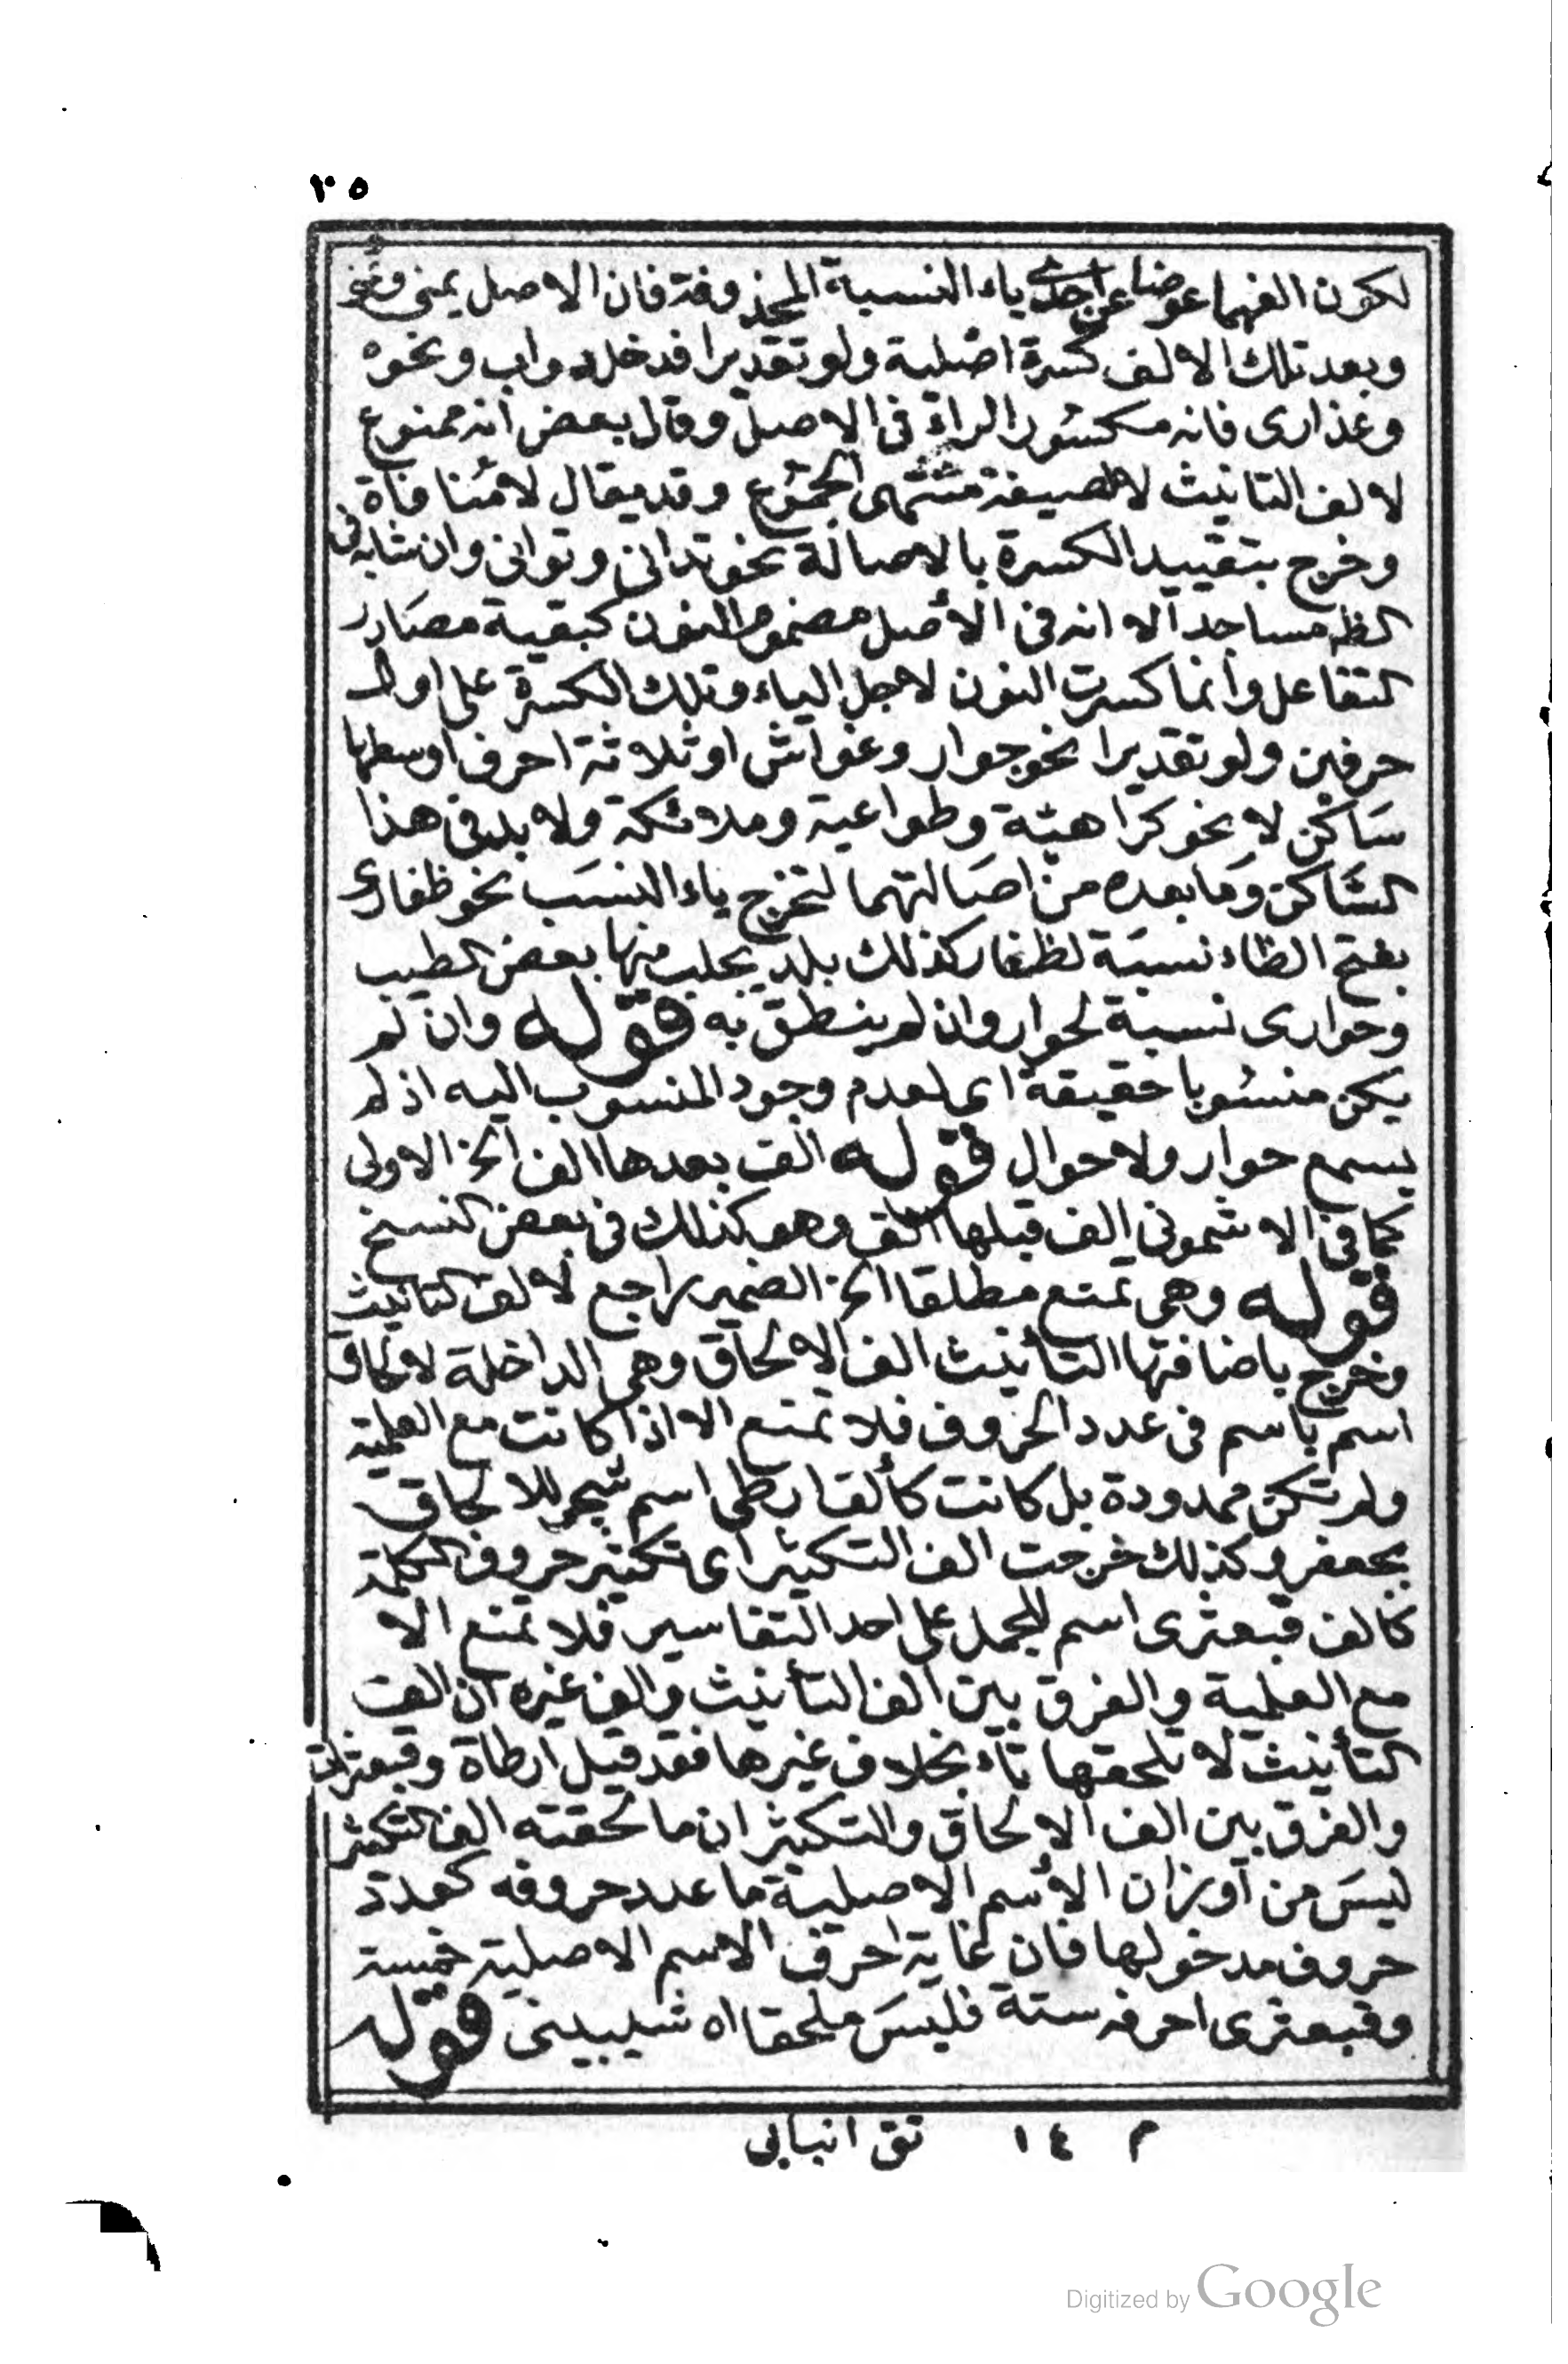 ٣٥
لكون الفهما عوضا عن احدى ياء النسبة المحذوفة فان الاصل يمنى ونحو
وبعد تلك الالف كسرة اصلية ولو تقديرا فدخل دواب ونحوه
وعذارى فانه مكسور الراء فى الاصل وقال بعض انه ممنوع
لالف التانيث لا لصيغة منتهى الجموع وقد يقال لا منافاة
وخرج بتقييد الكسرة بالاصالة نحو تدانى وتوانى وان شابه فى
اللفظ مساجد الا انه فى الأصل مضموم النون كبقية مصادر
التفاعل وانما كسرت النون لاجل الياء وتلك الكسرة على اول
حرفين ولو تقديرا نحو جوار وغواش او ثلاثة احرف اوسطها
ساكن لا نحو كراهية وطواعية وملائكة ولا بد فى هذا
الساكن وما بعده من اصالتهما لتخرج ياء النسب نحو ظفارى
بفتح الظاء نسبة لظفار كذلك بلد يجلب منها بعض الطيب
وحوارى نسبة لحوار وان لم ينطق به قوله وان لم
يكن منسوبا حقيقة اى لعدم وجود المنسوب اليه اذ لم
يسمع حوار ولا حوال قوله الف بعدها الف الخ الاولى
كما فى الاشمونى الف قبلها الف وهو كذلك فى بعض النسخ
قوله وهى تمنع مطلقا الخ الضمير راجع لالف التانيث
وخرج باضافتها التأنيث الف الالحاق وهى الداخلة لالحاق
اسم باسم فى عدد الحروف فلا تمنع الا اذا كانت مع العلمية
ولم تكن ممدودة بل كانت كألف ارطى اسم شجر للالحاق
بجعفر وكذلك خرجت الف التكثير اى تكثير حروف الكلمة
كالف قبعثرى اسم للجمل على احد التفاسير فلا تمنع الا
مع العلمية والفرق بين الف التأنيث والف غيره ان الف
التأنيث لا تلحقها تاء بخلاف غيرها فقد قيل ارطاة وقبعثراة
والفرق بين الف الالحاق والتكثير ان ما لحقته الف التكثير
ليس من اوزان الأسم الاصلية ما عدد حروفه كعدة
حروف مدخولها فان غاية احرف الاسم الاصلية خمسة
وقبعثرى احرفه ستة فليس ملحقا اه شيبينى قوله
م ١٤ تق انبابى
Digitized by Google